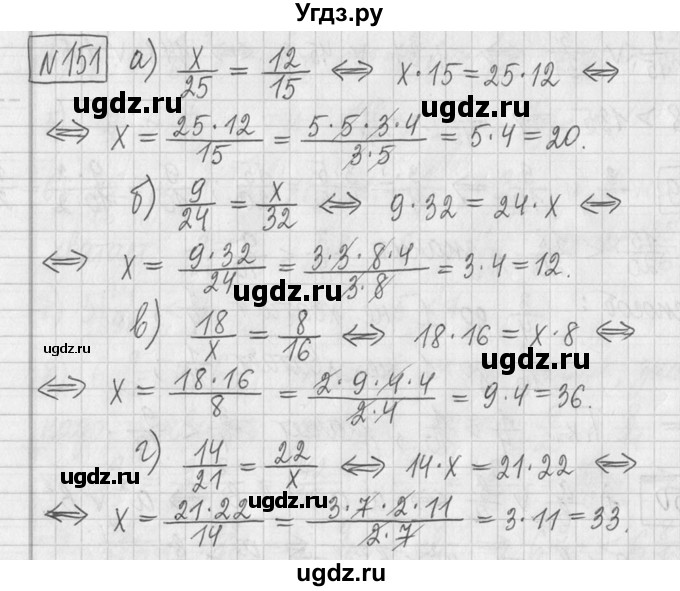 Угдз.ру
№151 а) x/25 = 12/15 ⇔ x·15 = 25·12 ⇔
ugdz.ru ugdz.ru
⇔ x = 25·12/15 = 5·5·3·4/3·5 = 5·4 = 20.
б) 9/24 = x/32 ⇔ 9·32 = 24·x ⇔
⇔ x = 9·32/24 = 3·3·8·4/3·8 = 3·4 = 12.
ugdz.ru
в) 18/x = 8/16 ⇔ 18·16 = x·8 ⇔
ugdz.ru ugdz.ru
⇔ x = 18·16/8 = 2·9·4·4/2·4 = 9·4 = 36.
г) 14/21 = 22/x ⇔ 14·x = 21·22 ⇔
ugdz.ru ugdz.ru
⇔ x = 21·22/14 = 3·7·2·11/2·7 = 3·11 = 33.
ugdz.ru